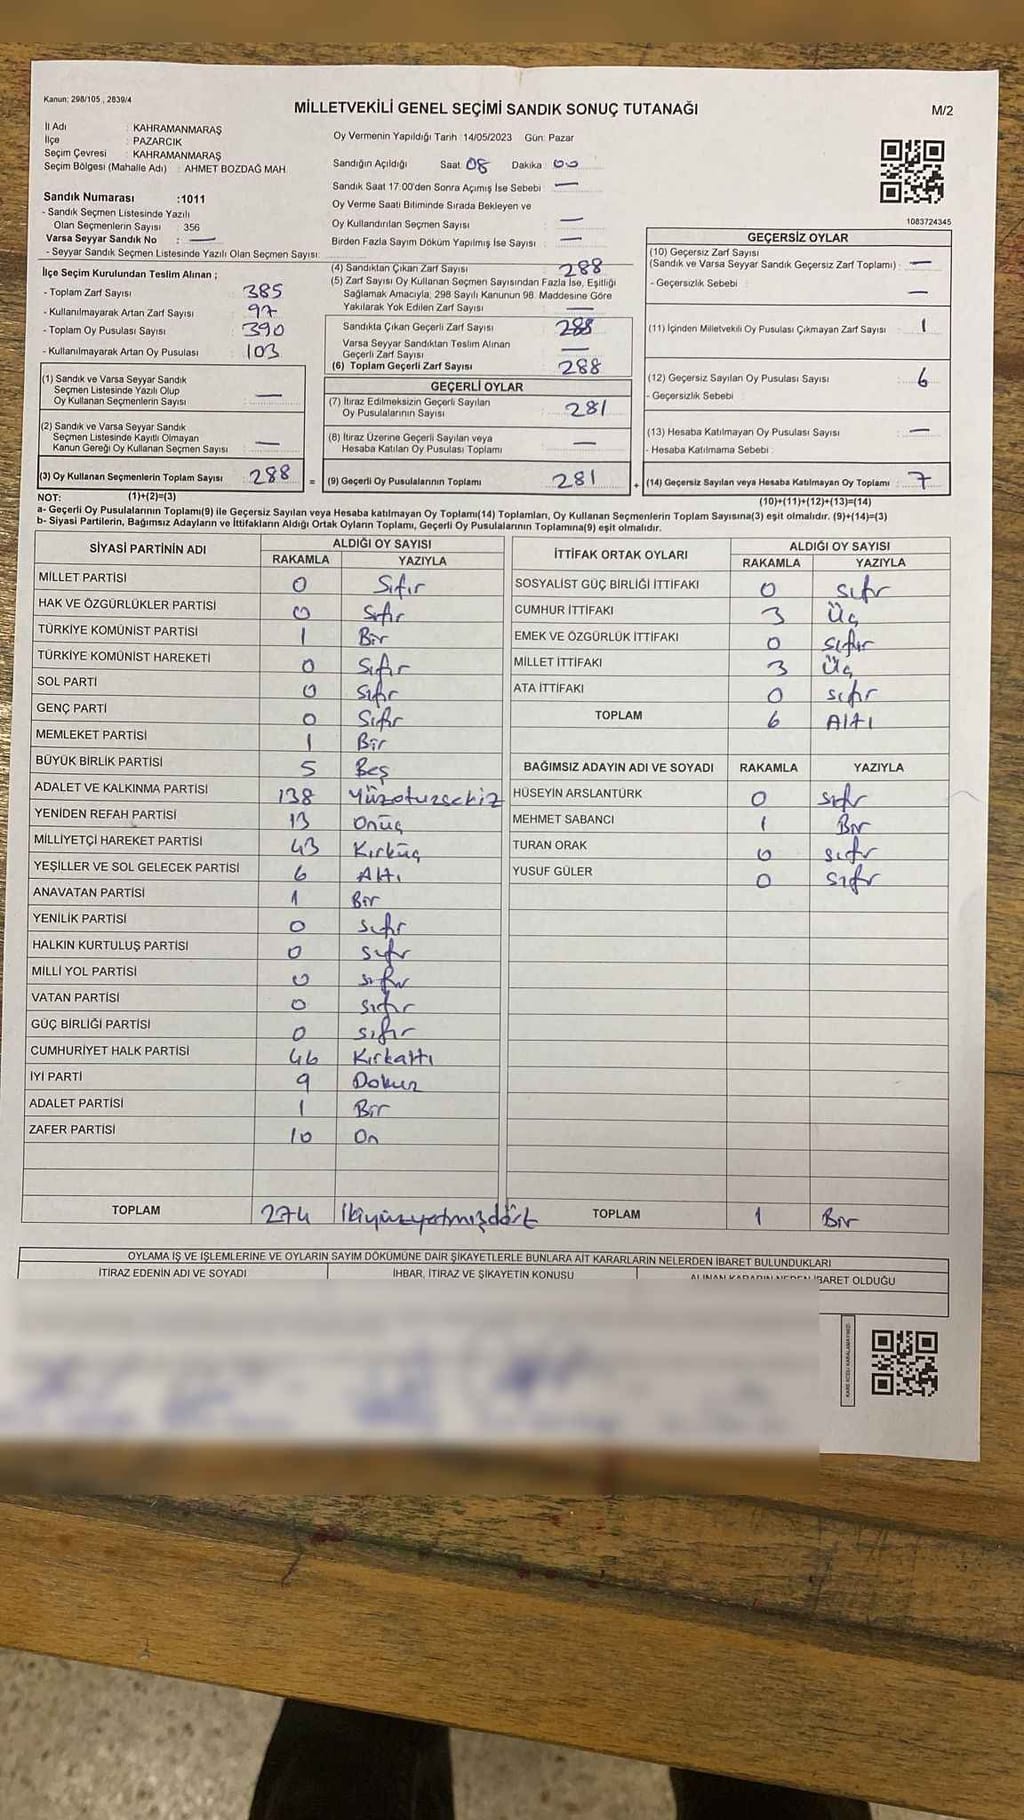 Kanun: 298/105 , 2839/4
MİLLETVEKİLİ GENEL SEÇİMİ SANDIK SONUÇ TUTANAĞI
M/2
İl Adı : KAHRAMANMARAŞ
İlçe : PAZARCIK
Seçim Çevresi : KAHRAMANMARAŞ
Seçim Bölgesi (Mahalle Adı) : AHMET BOZDAĞ MAH
Sandık Numarası :1011
- Sandık Seçmen Listesinde Yazılı
Olan Seçmenlerin Sayısı : 356
Varsa Seyyar Sandık No : —
- Seyyar Sandık Seçmen Listesinde Yazılı Olan Seçmen Sayısı:
Oy Vermenin Yapıldığı Tarih :14/05/2023 Gün: Pazar
Sandığın Açıldığı Saat 08 Dakika : 00
Sandık Saat 17:00'den Sonra Açımış İse Sebebi : —
Oy Verme Saati Bitiminde Sırada Bekleyen ve
Oy Kullandırılan Seçmen Sayısı : —
Birden Fazla Sayım Döküm Yapılmış İse Sayısı : —
1083724345
İlçe Seçim Kurulundan Teslim Alınan ;
- Toplam Zarf Sayısı : 385
- Kullanılmayarak Artan Zarf Sayısı : 97
- Toplam Oy Pusulası Sayısı : 390
- Kullanılmayarak Artan Oy Pusulası : 103
(1) Sandık ve Varsa Seyyar Sandık
Seçmen Listesinde Yazılı Olup
Oy Kullanan Seçmenlerin Sayısı : —
(2) Sandık ve Varsa Seyyar Sandık
Seçmen Listesinde Kayıtlı Olmayan
Kanun Gereği Oy Kullanan Seçmen Sayısı : —
(3) Oy Kullanan Seçmenlerin Toplam Sayısı : 288 =
(4) Sandıktan Çıkan Zarf Sayısı : 288
(5) Zarf Sayısı Oy Kullanan Seçmen Sayısından Fazla İse, Eşitliği
Sağlamak Amacıyla; 298 Sayılı Kanunun 98. Maddesine Göre
Yakılarak Yok Edilen Zarf Sayısı : —
Sandıkta Çıkan Geçerli Zarf Sayısı : 288
Varsa Seyyar Sandıktan Teslim Alınan
Geçerli Zarf Sayısı : —
(6) Toplam Geçerli Zarf Sayısı : 288
GEÇERLİ OYLAR
(7) İtiraz Edilmeksizin Geçerli Sayılan
Oy Pusulalarının Sayısı : 281
(8) İtiraz Üzerine Geçerli Sayılan veya
Hesaba Katılan Oy Pusulası Toplamı : —
(9) Geçerli Oy Pusulalarının Toplamı : 281 +
GEÇERSİZ OYLAR
(10) Geçersiz Zarf Sayısı
(Sandık ve Varsa Seyyar Sandık Geçersiz Zarf Toplamı) : —
- Geçersizlik Sebebi : —
(11) İçinden Milletvekili Oy Pusulası Çıkmayan Zarf Sayısı : 1
(12) Geçersiz Sayılan Oy Pusulası Sayısı : 6
- Geçersizlik Sebebi :
(13) Hesaba Katılmayan Oy Pusulası Sayısı : —
- Hesaba Katılmama Sebebi :
(14) Geçersiz Sayılan veya Hesaba Katılmayan Oy Toplamı : 7
NOT: (1)+(2)=(3) (10)+(11)+(12)+(13)=(14)
a- Geçerli Oy Pusulalarının Toplamı(9) ile Geçersiz Sayılan veya Hesaba katılmayan Oy Toplamı(14) Toplamları, Oy Kullanan Seçmenlerin Toplam Sayısına(3) eşit olmalıdır. (9)+(14)=(3)
b- Siyasi Partilerin, Bağımsız Adayların ve İttifakların Aldığı Ortak Oyların Toplamı, Geçerli Oy Pusulalarının Toplamına(9) eşit olmalıdır.
SİYASİ PARTİNİN ADI ALDIĞI OY SAYISI
RAKAMLA YAZIYLA
MİLLET PARTİSİ 0 Sıfır
HAK VE ÖZGÜRLÜKLER PARTİSİ 0 Sıfır
TÜRKİYE KOMÜNİST PARTİSİ 1 Bir
TÜRKİYE KOMÜNİST HAREKETİ 0 Sıfır
SOL PARTİ 0 Sıfır
GENÇ PARTİ 0 Sıfır
MEMLEKET PARTİSİ 1 Bir
BÜYÜK BİRLİK PARTİSİ 5 Beş
ADALET VE KALKINMA PARTİSİ 138 Yüzotuzsekiz
YENİDEN REFAH PARTİSİ 13 Onüç
MİLLİYETÇİ HAREKET PARTİSİ 43 Kırküç
YEŞİLLER VE SOL GELECEK PARTİSİ 6 Altı
ANAVATAN PARTİSİ 1 Bir
YENİLİK PARTİSİ 0 sıfır
HALKIN KURTULUŞ PARTİSİ 0 sıfır
MİLLİ YOL PARTİSİ 0 sıfır
VATAN PARTİSİ 0 sıfır
GÜÇ BİRLİĞİ PARTİSİ 0 sıfır
CUMHURİYET HALK PARTİSİ 46 Kırkaltı
İYİ PARTİ 9 Dokuz
ADALET PARTİSİ 1 Bir
ZAFER PARTİSİ 10 On
TOPLAM 274 İkiyüzyetmişdört
İTTİFAK ORTAK OYLARI ALDIĞI OY SAYISI
RAKAMLA YAZIYLA
SOSYALİST GÜÇ BİRLİĞİ İTTİFAKI 0 sıfır
CUMHUR İTTİFAKI 3 Üç
EMEK VE ÖZGÜRLÜK İTTİFAKI 0 sıfır
MİLLET İTTİFAKI 3 Üç
ATA İTTİFAKI 0 sıfır
TOPLAM 6 Altı
BAĞIMSIZ ADAYIN ADI VE SOYADI RAKAMLA YAZIYLA
HÜSEYİN ARSLANTÜRK 0 sıfır
MEHMET SABANCI 1 Bir
TURAN ORAK 0 sıfır
YUSUF GÜLER 0 sıfır
TOPLAM 1 Bir
OYLAMA İŞ VE İŞLEMLERİNE VE OYLARIN SAYIM DÖKÜMÜNE DAİR ŞİKAYETLERLE BUNLARA AİT KARARLARIN NELERDEN İBARET BULUNDUKLARI
İTİRAZ EDENİN ADI VE SOYADI İHBAR, İTİRAZ VE ŞİKAYETİN KONUSU ALINAN KARARIN NEDEN İBARET OLDUĞU